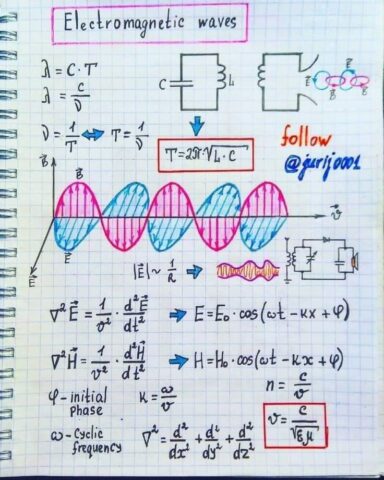 Electromagnetic waves
λ = C · T
λ = C/ν
C
L
E
B
ν = 1/T ⇔ T = 1/ν
T = 2π · √L · C
follow
@gurij0001
B
E
v
|E| ~ 1/R
∇² E = 1/v² · d²E/dt² ➡ E = E₀ · cos(ωt - κx + φ)
∇² H = 1/v² · d²H/dt² ➡ H = H₀ · cos(ωt - κx + φ)
φ - initial phase
κ = ω/v
n = c/v
ω - cyclic frequency
∇² = d²/dx² + d²/dy² + d²/dz²
v = c/√ε μ